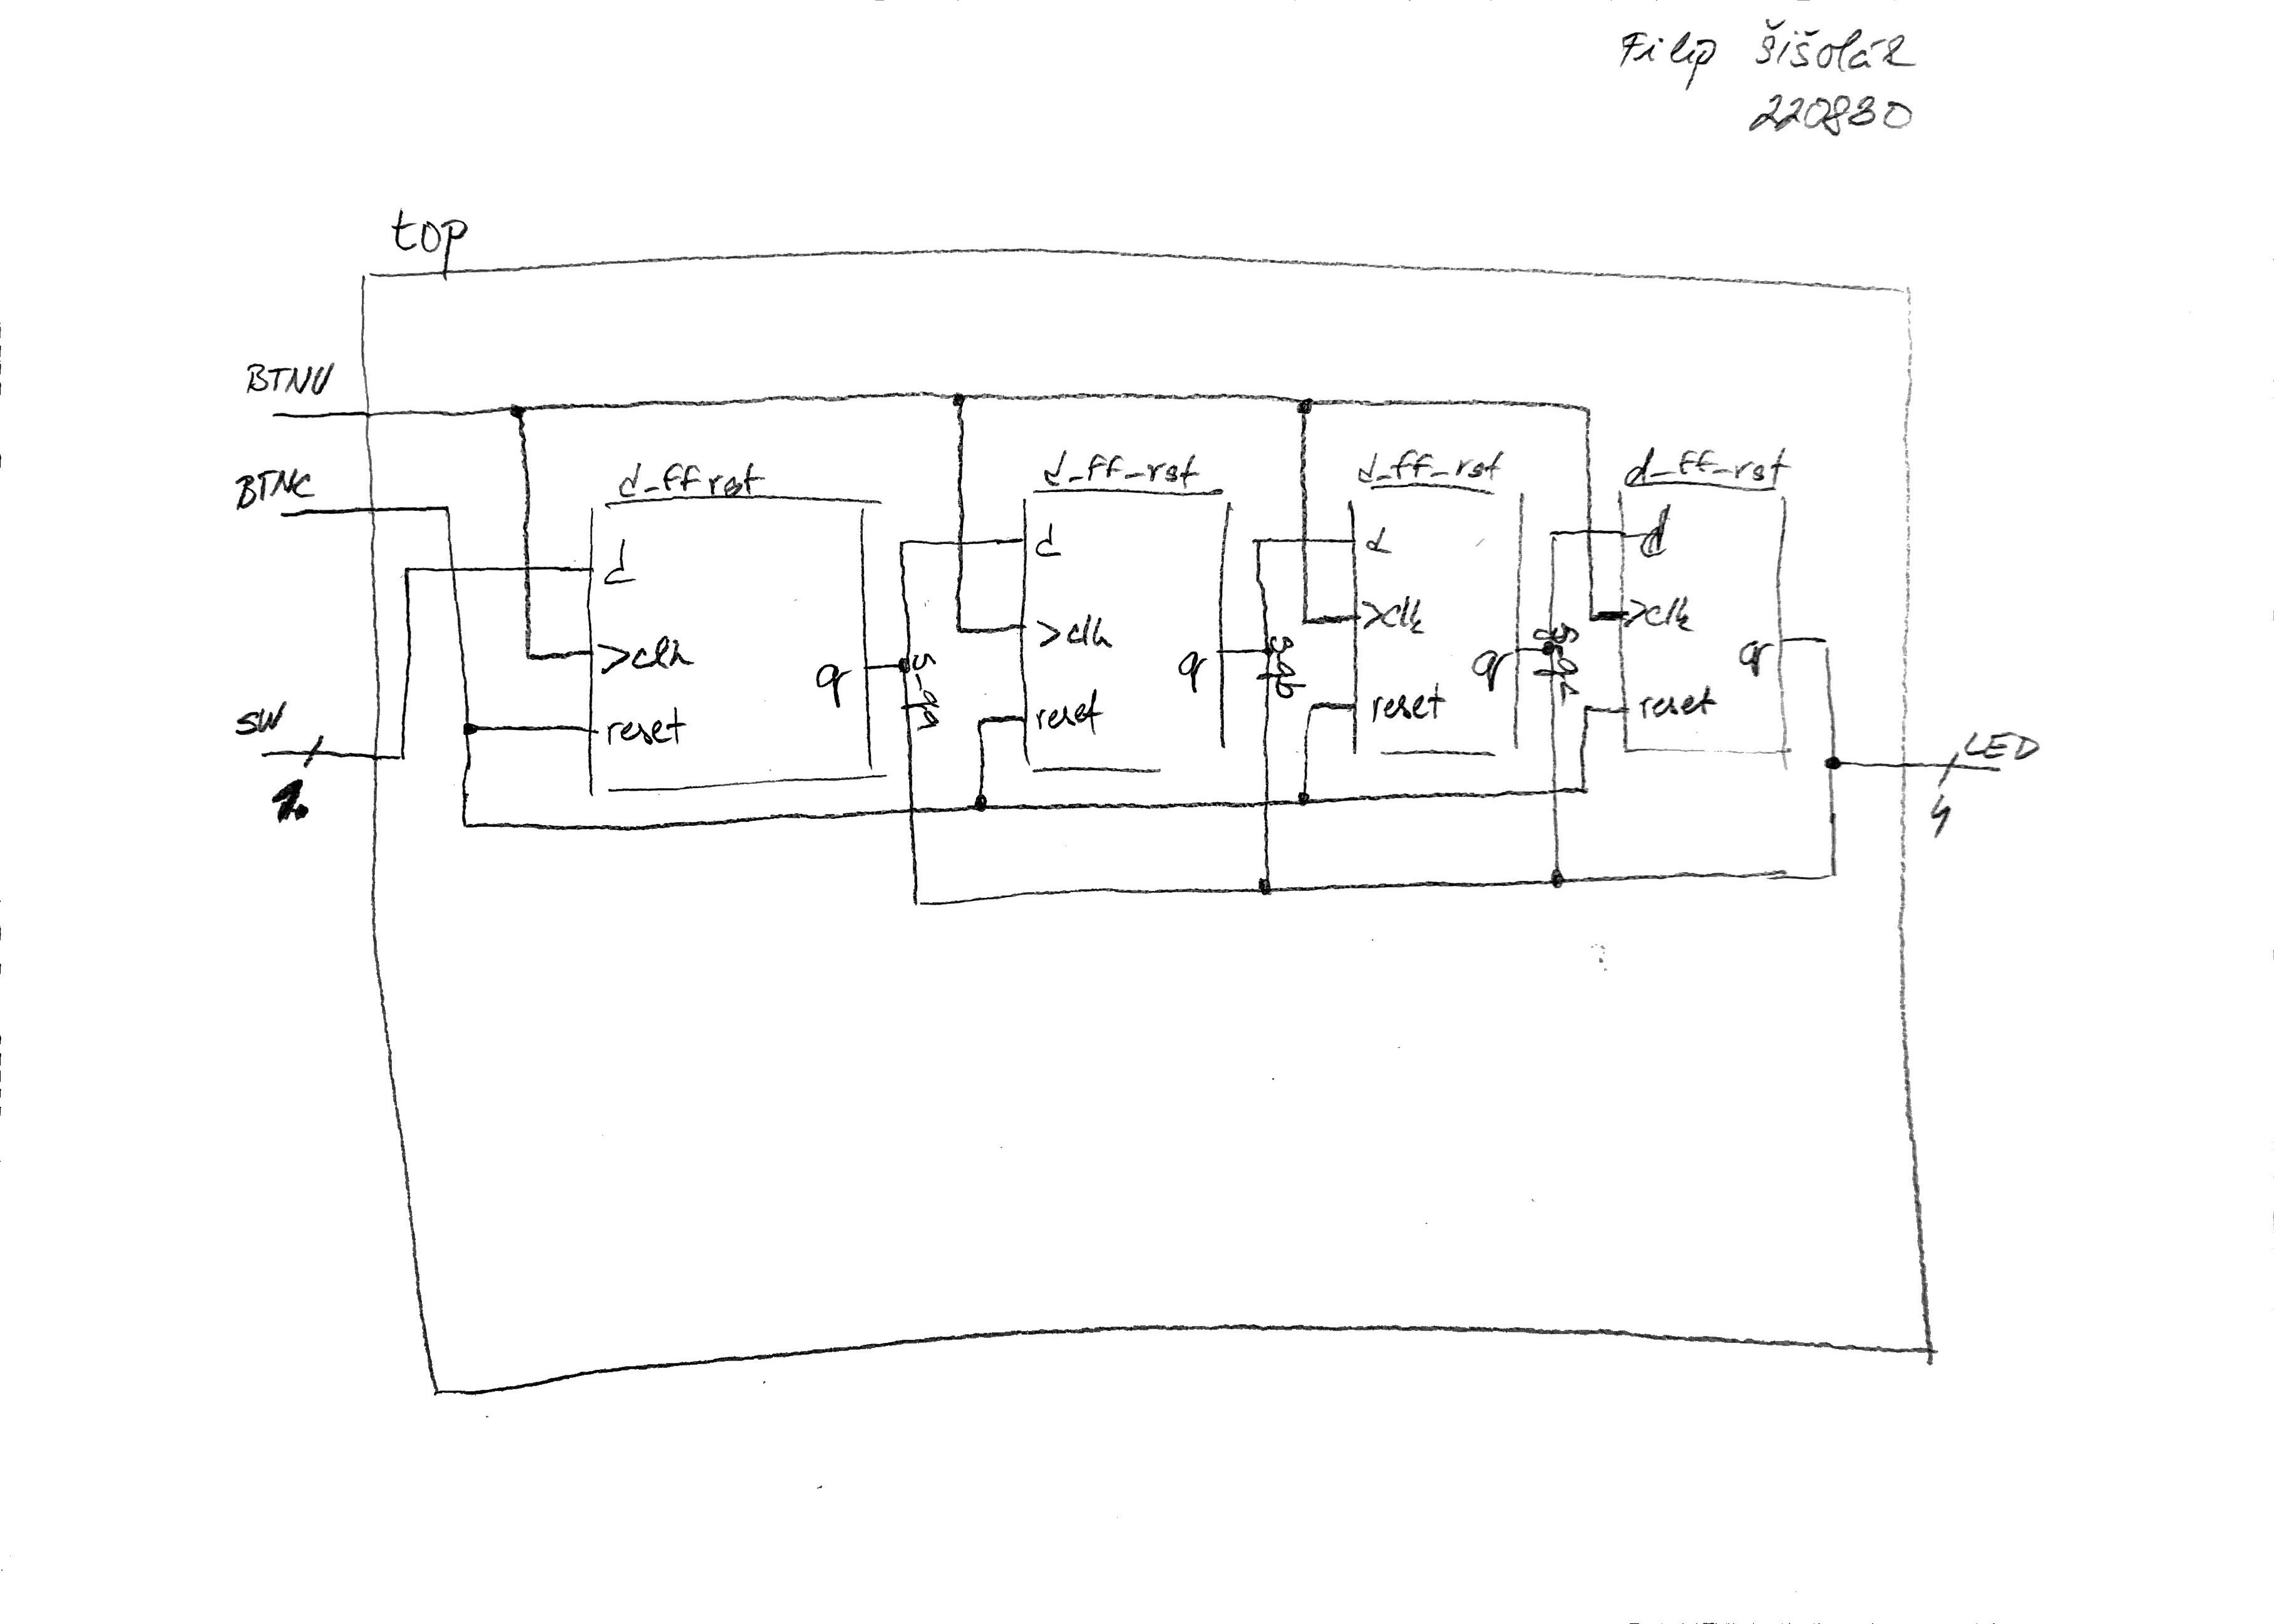 Filip Šišolák
220830
top
BTNU
BTNC
SW
1
d_ff rst
d
>clk
reset
q
d_ff_rst
d
>clk
reset
q
d_ff_rst
d
>clk
reset
q
d_ff_rst
d
>clk
reset
q
LED
4